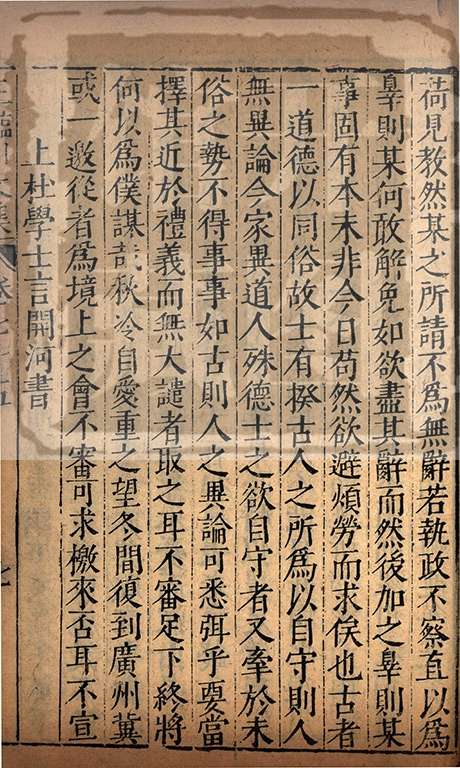 荷見教然某之所請不爲無辭若執政不察直以爲
辠則某何敢解免如欲盡其辭而然後加之辠則某
事固有本末非今日苟然欲避煩勞而求佚也古者
一道德以同俗故士有揆古人之所爲以自守則人
無異論今家異道人殊德士之欲自守者又牽於末
俗之勢不得事事如古則人之異論可悉弭乎要當
擇其近於禮義而無大譴者取之耳不審足下終將
何以爲僕謀哉秋冷自愛重之望冬間復到廣州冀
或一邀從者爲境上之會不審可求檄來否耳不宣
上杜學士言開河書